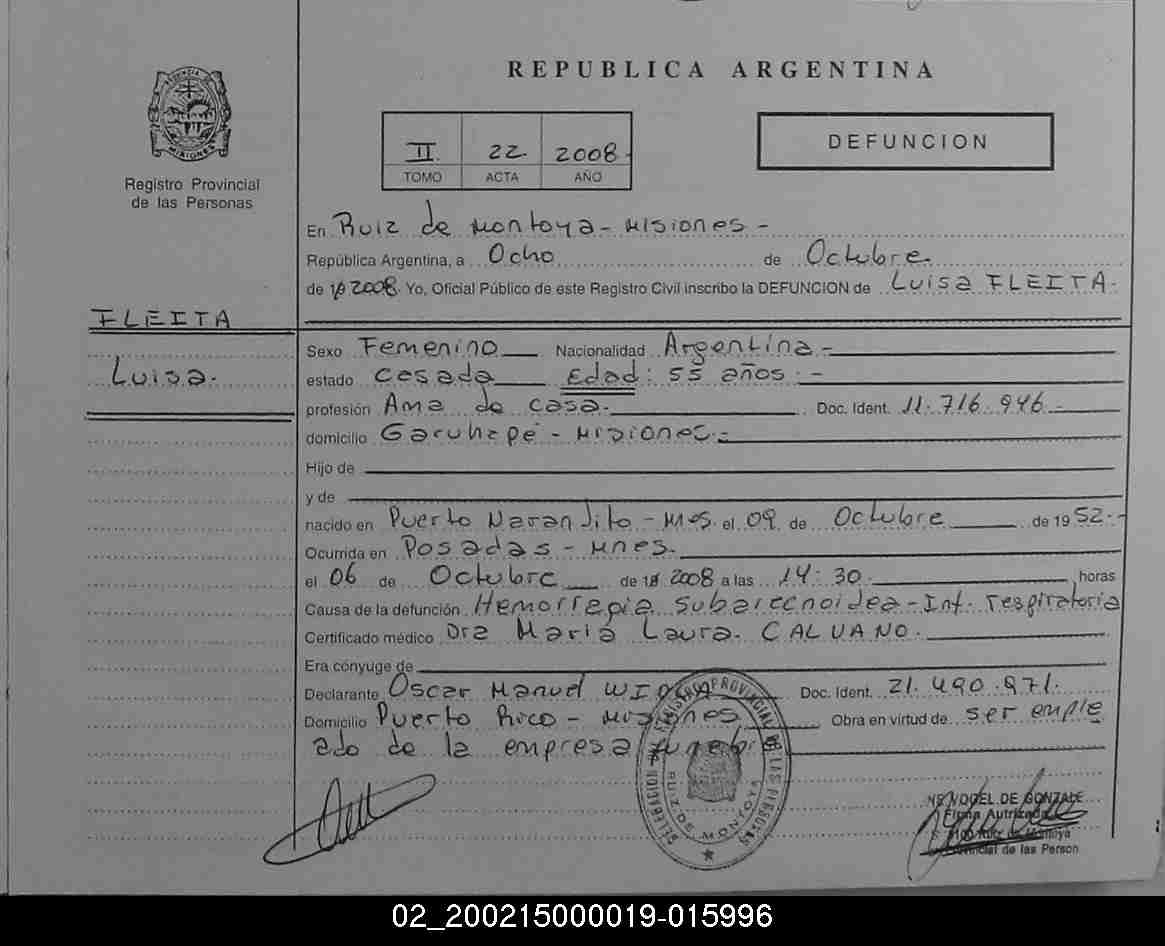 REPUBLICA ARGENTINA
PROVINCIA DE
MISIONES
Registro Provincial
de las Personas
II. 22. 2008.
TOMO ACTA AÑO
DEFUNCION
En Ruiz de Montoya - Misiones -
República Argentina, a Ocho de Octubre.
de 19 2008. Yo, Oficial Público de este Registro Civil inscribo la DEFUNCION de Luisa FLEITA.
FLEITA
Luisa.
Sexo Femenino Nacionalidad Argentina -
estado Casada Edad: 55 años: -
profesión Ama de casa. Doc. Ident. 11.716.946 -
domicilio Garuhapé - Misiones -
Hijo de
y de
nacido en Puerto Naranjito - Mnes. el 09 de Octubre de 19 52. -
Ocurrida en Posadas - Mnes.
el 06 de Octubre de 19 2008 a las 14:30 horas
Causa de la defunción Hemorragia Subaracnoidea - Inf. respiratoria
Certificado médico Dra Maria Laura. CALVANO.
Era cónyuge de
Declarante Oscar Manuel Doc. Ident. 21.490.971.
Domicilio Puerto Rico - Misiones Obra en virtud de ser emple
ado de la empresa funebre
DELEGACION DEL REGISTRO PROVINCIAL DE LAS PERSONAS
RUIZ DE MONTOYA
VOGEL DE GONZALE
Firma Autrizada
Ruiz de Montoya
de las Person
02_200215000019-015996